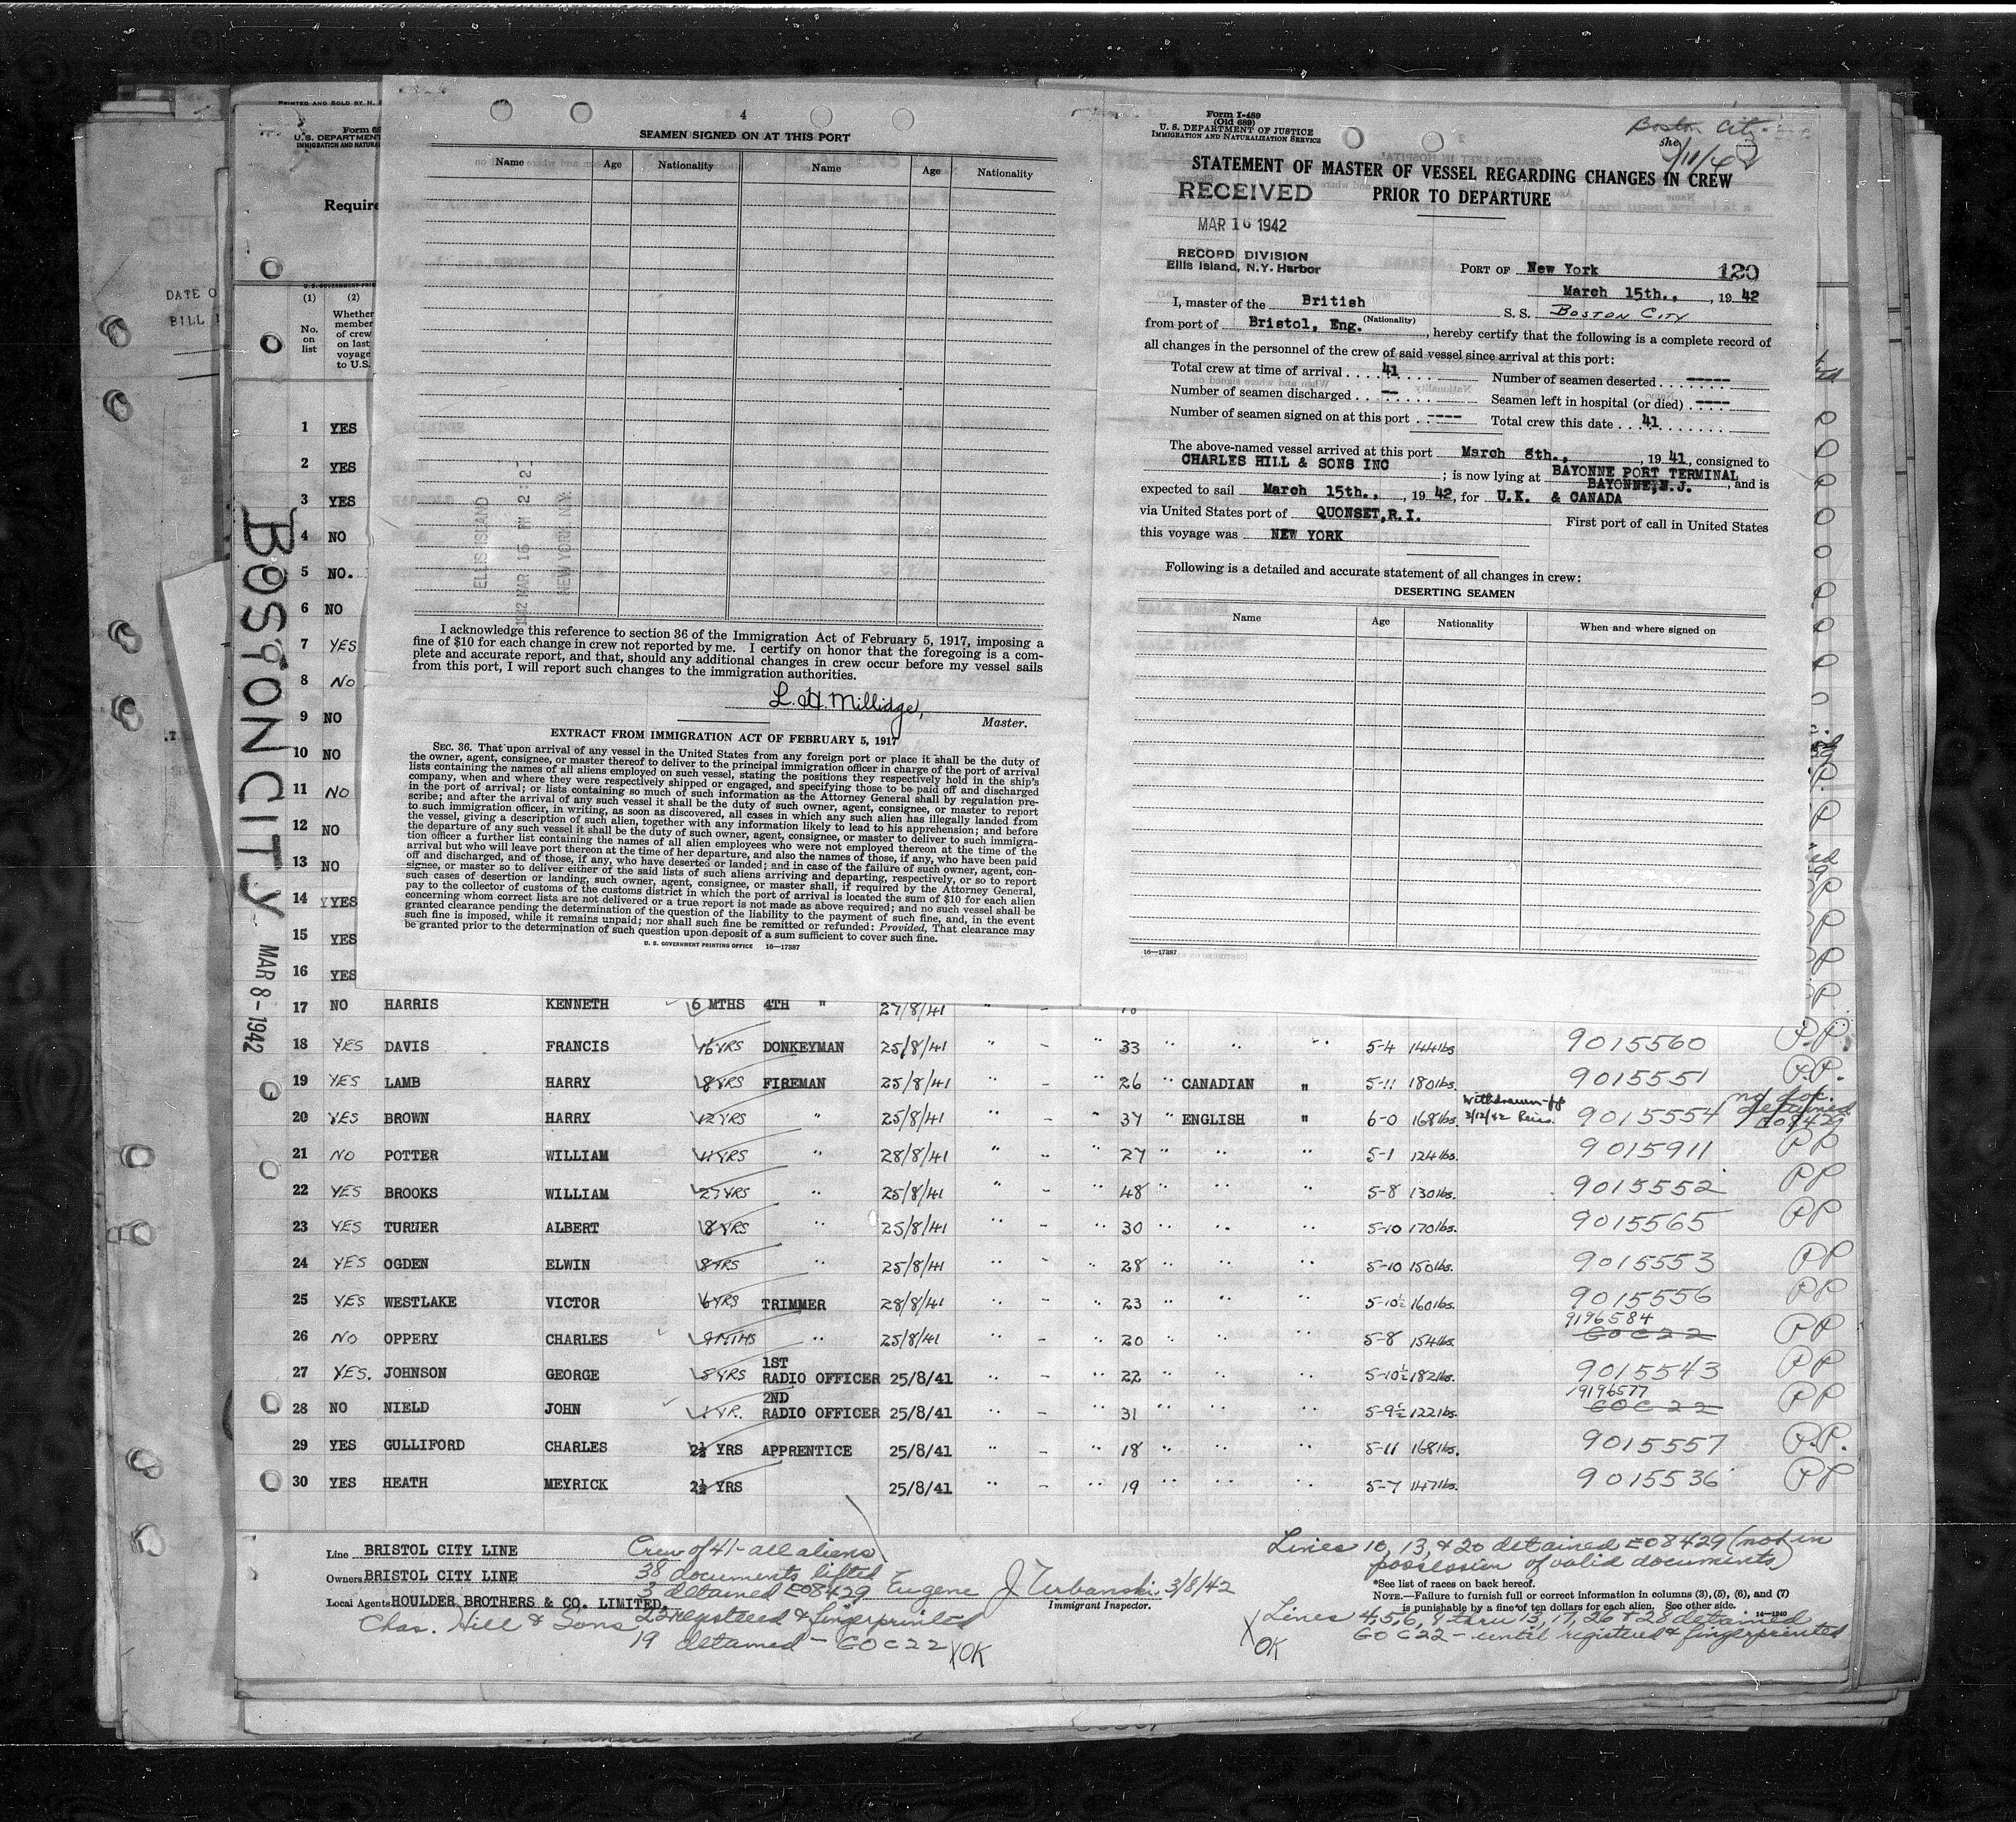 4
SEAMEN SIGNED ON AT THIS PORT
Name Age Nationality Name Age Nationality
ELLIS ISLAND
NEW YORK, N.Y.
I acknowledge this reference to section 36 of the Immigration Act of February 5, 1917, imposing a
fine of $10 for each change in crew not reported by me. I certify on honor that the foregoing is a com-
plete and accurate report, and that, should any additional changes in crew occur before my vessel sails
from this port, I will report such changes to the immigration authorities.
L. H. Millidge,
Master.
EXTRACT FROM IMMIGRATION ACT OF FEBRUARY 5, 1917
SEC. 36. That upon arrival of any vessel in the United States from any foreign port or place it shall be the duty of
the owner, agent, consignee, or master thereof to deliver to the principal immigration officer in charge of the port of arrival
lists containing the names of all aliens employed on such vessel, stating the positions they respectively hold in the ship's
company, when and where they were respectively shipped or engaged, and specifying those to be paid off and discharged
in the port of arrival; or lists containing so much of such information as the Attorney General shall by regulation pre-
scribe; and after the arrival of any such vessel it shall be the duty of such owner, agent, consignee, or master to report
to such immigration officer, in writing, as soon as discovered, all cases in which any such alien has illegally landed from
the vessel, giving a description of such alien, together with any information likely to lead to his apprehension; and before
the departure of any such vessel it shall be the duty of such owner, agent, consignee, or master to deliver to such immigra-
tion officer a further list containing the names of all alien employees who were not employed thereon at the time of the
arrival but who will leave port thereon at the time of her departure, and also the names of those, if any, who have been paid
off and discharged, and of those, if any, who have deserted or landed; and in case of the failure of such owner, agent, con-
signee, or master so to deliver either of the said lists of such aliens arriving and departing, respectively, or so to report
such cases of desertion or landing, such owner, agent, consignee, or master shall, if required by the Attorney General,
pay to the collector of customs of the customs district in which the port of arrival is located the sum of $10 for each alien
concerning whom correct lists are not delivered or a true report is not made as above required; and no such vessel shall be
granted clearance pending the determination of the question of the liability to the payment of such fine, and, in the event
such fine is imposed, while it remains unpaid; nor shall such fine be remitted or refunded: Provided, That clearance may
be granted prior to the determination of such question upon deposit of a sum sufficient to cover such fine.
U. S. GOVERNMENT PRINTING OFFICE 16—17387
Form I-489
(Old 689)
U. S. DEPARTMENT OF JUSTICE
IMMIGRATION AND NATURALIZATION SERVICE
Boston City
STATEMENT OF MASTER OF VESSEL REGARDING CHANGES IN CREW
PRIOR TO DEPARTURE
RECEIVED
MAR 16 1942
RECORD DIVISION
Ellis Island, N.Y. Harbor
PORT OF New York 120
March 15th., , 19 42
I, master of the British S. S. BOSTON CITY
(Nationality)
from port of Bristol, Eng. , hereby certify that the following is a complete record of
all changes in the personnel of the crew of said vessel since arrival at this port:
Total crew at time of arrival 41 Number of seamen deserted -----
Number of seamen discharged -- Seamen left in hospital (or died) ----
Number of seamen signed on at this port ---- Total crew this date 41
The above-named vessel arrived at this port March 8th., , 19 41, consigned to
CHARLES HILL & SONS INC ; is now lying at BAYONNE PORT TERMINAL
BAYONNE, N.J. , and is
expected to sail March 15th., , 19 42, for U.K. & CANADA
via United States port of QUONSET, R.I. First port of call in United States
this voyage was NEW YORK
Following is a detailed and accurate statement of all changes in crew:
DESERTING SEAMEN
Name Age Nationality When and where signed on
16—17387
PRINTED AND SOLD BY H.
U. S. DEPARTMENT
IMMIGRATION AND NATURAL
Require
DATE O
BILL
(1) (2)
No. on list
Whether member of crew on last voyage to U.S.
BOSTON CITY MAR 8-1942
1 YES
2 YES
3 YES
4 NO
5 NO.
6 NO
7 YES
8 NO
9 NO
10 NO
11 NO
12 NO
13 NO
14 YES
15 YES
16 YES
17 NO HARRIS KENNETH 6 MTHS 4TH " 27/8/41 " -
18 YES DAVIS FRANCIS 16 YRS DONKEYMAN 25/8/41 " - " 33 " " " 5-4 144lbs 9015560 P.P.
19 YES LAMB HARRY 8 YRS FIREMAN 25/8/41 " - " 26 " CANADIAN " 5-11 180lbs. 9015551 P.P.
20 YES BROWN HARRY 12 YRS " 25/8/41 " - " 37 " ENGLISH " 6-0 168lbs. 3/12/42 9015554 no doc. detained E08429
21 NO POTTER WILLIAM 11 YRS " 28/8/41 " - " 27 " " " 5-1 124lbs. 9015911 PP
22 YES BROOKS WILLIAM 27 YRS " 25/8/41 " - " 48 " " " 5-8 130lbs. 9015552 PP
23 YES TURNER ALBERT 8 YRS " 25/8/41 " - " 30 " " " 5-10 170lbs. 9015565 PP
24 YES OGDEN ELWIN 8 YRS " 25/8/41 " - " 28 " " " 5-10 150lbs. 9015553 PP
25 YES WESTLAKE VICTOR 6 YRS TRIMMER 28/8/41 " - " 23 " " " 5-10½ 160lbs. 9015556 PP
26 NO OPPERY CHARLES 9 MTHS " 25/8/41 " - " 20 " " " 5-8 154lbs. 9196584 GOC22 PP
27 YES. JOHNSON GEORGE 5 YRS 1ST RADIO OFFICER 25/8/41 " - " 22 " " " 5-10½ 182lbs. 9015543 PP
28 NO NIELD JOHN 1 YR. 2ND RADIO OFFICER 25/8/41 " - " 31 " " " 5-9½ 122lbs. 9196577 GOC22 PP
29 YES GULLIFORD CHARLES 2½ YRS APPRENTICE 25/8/41 " - " 18 " " " 5-11 168lbs. 9015557 P.P.
30 YES HEATH MEYRICK 2½ YRS 25/8/41 " - " 19 " " " 5-7 147lbs. 9015536 PP
Line BRISTOL CITY LINE
Owners BRISTOL CITY LINE
Local Agents HOULDER BROTHERS & CO. LIMITED.
Chas. Hill & Sons
Crew of 41 - all aliens
38 documents lifted
3 detained E08429
22 registered & fingerprinted
19 detained - GOC22 XOK
Eugene J. Urbanski. 3/8/42
Immigrant Inspector.
Lines 10, 13, & 20 detained E08429 (not in
possession of valid documents)
*See list of races on back hereof.
NOTE.—Failure to furnish full or correct information in columns (3), (5), (6), and (7)
is punishable by a fine of ten dollars for each alien. See other side. 14—1240
Lines 4, 5, 6, 9 thru 13, 17, 26 & 28 detained
GOC22 - until registered & fingerprinted
X OK